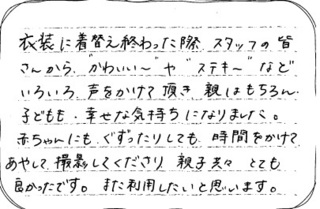 衣装に着替え終わった際、スタッフの皆
さんから、"かわいい〜"や"ステキ〜"など
いろいろ声をかけて頂き、親はもちろん、
子どもも、幸せな気持ちになりました。
赤ちゃんにも、ぐずったりしても、時間をかけて
あやして撮影してくださり、親子共々、とても
良かったです。また利用したいと思います。